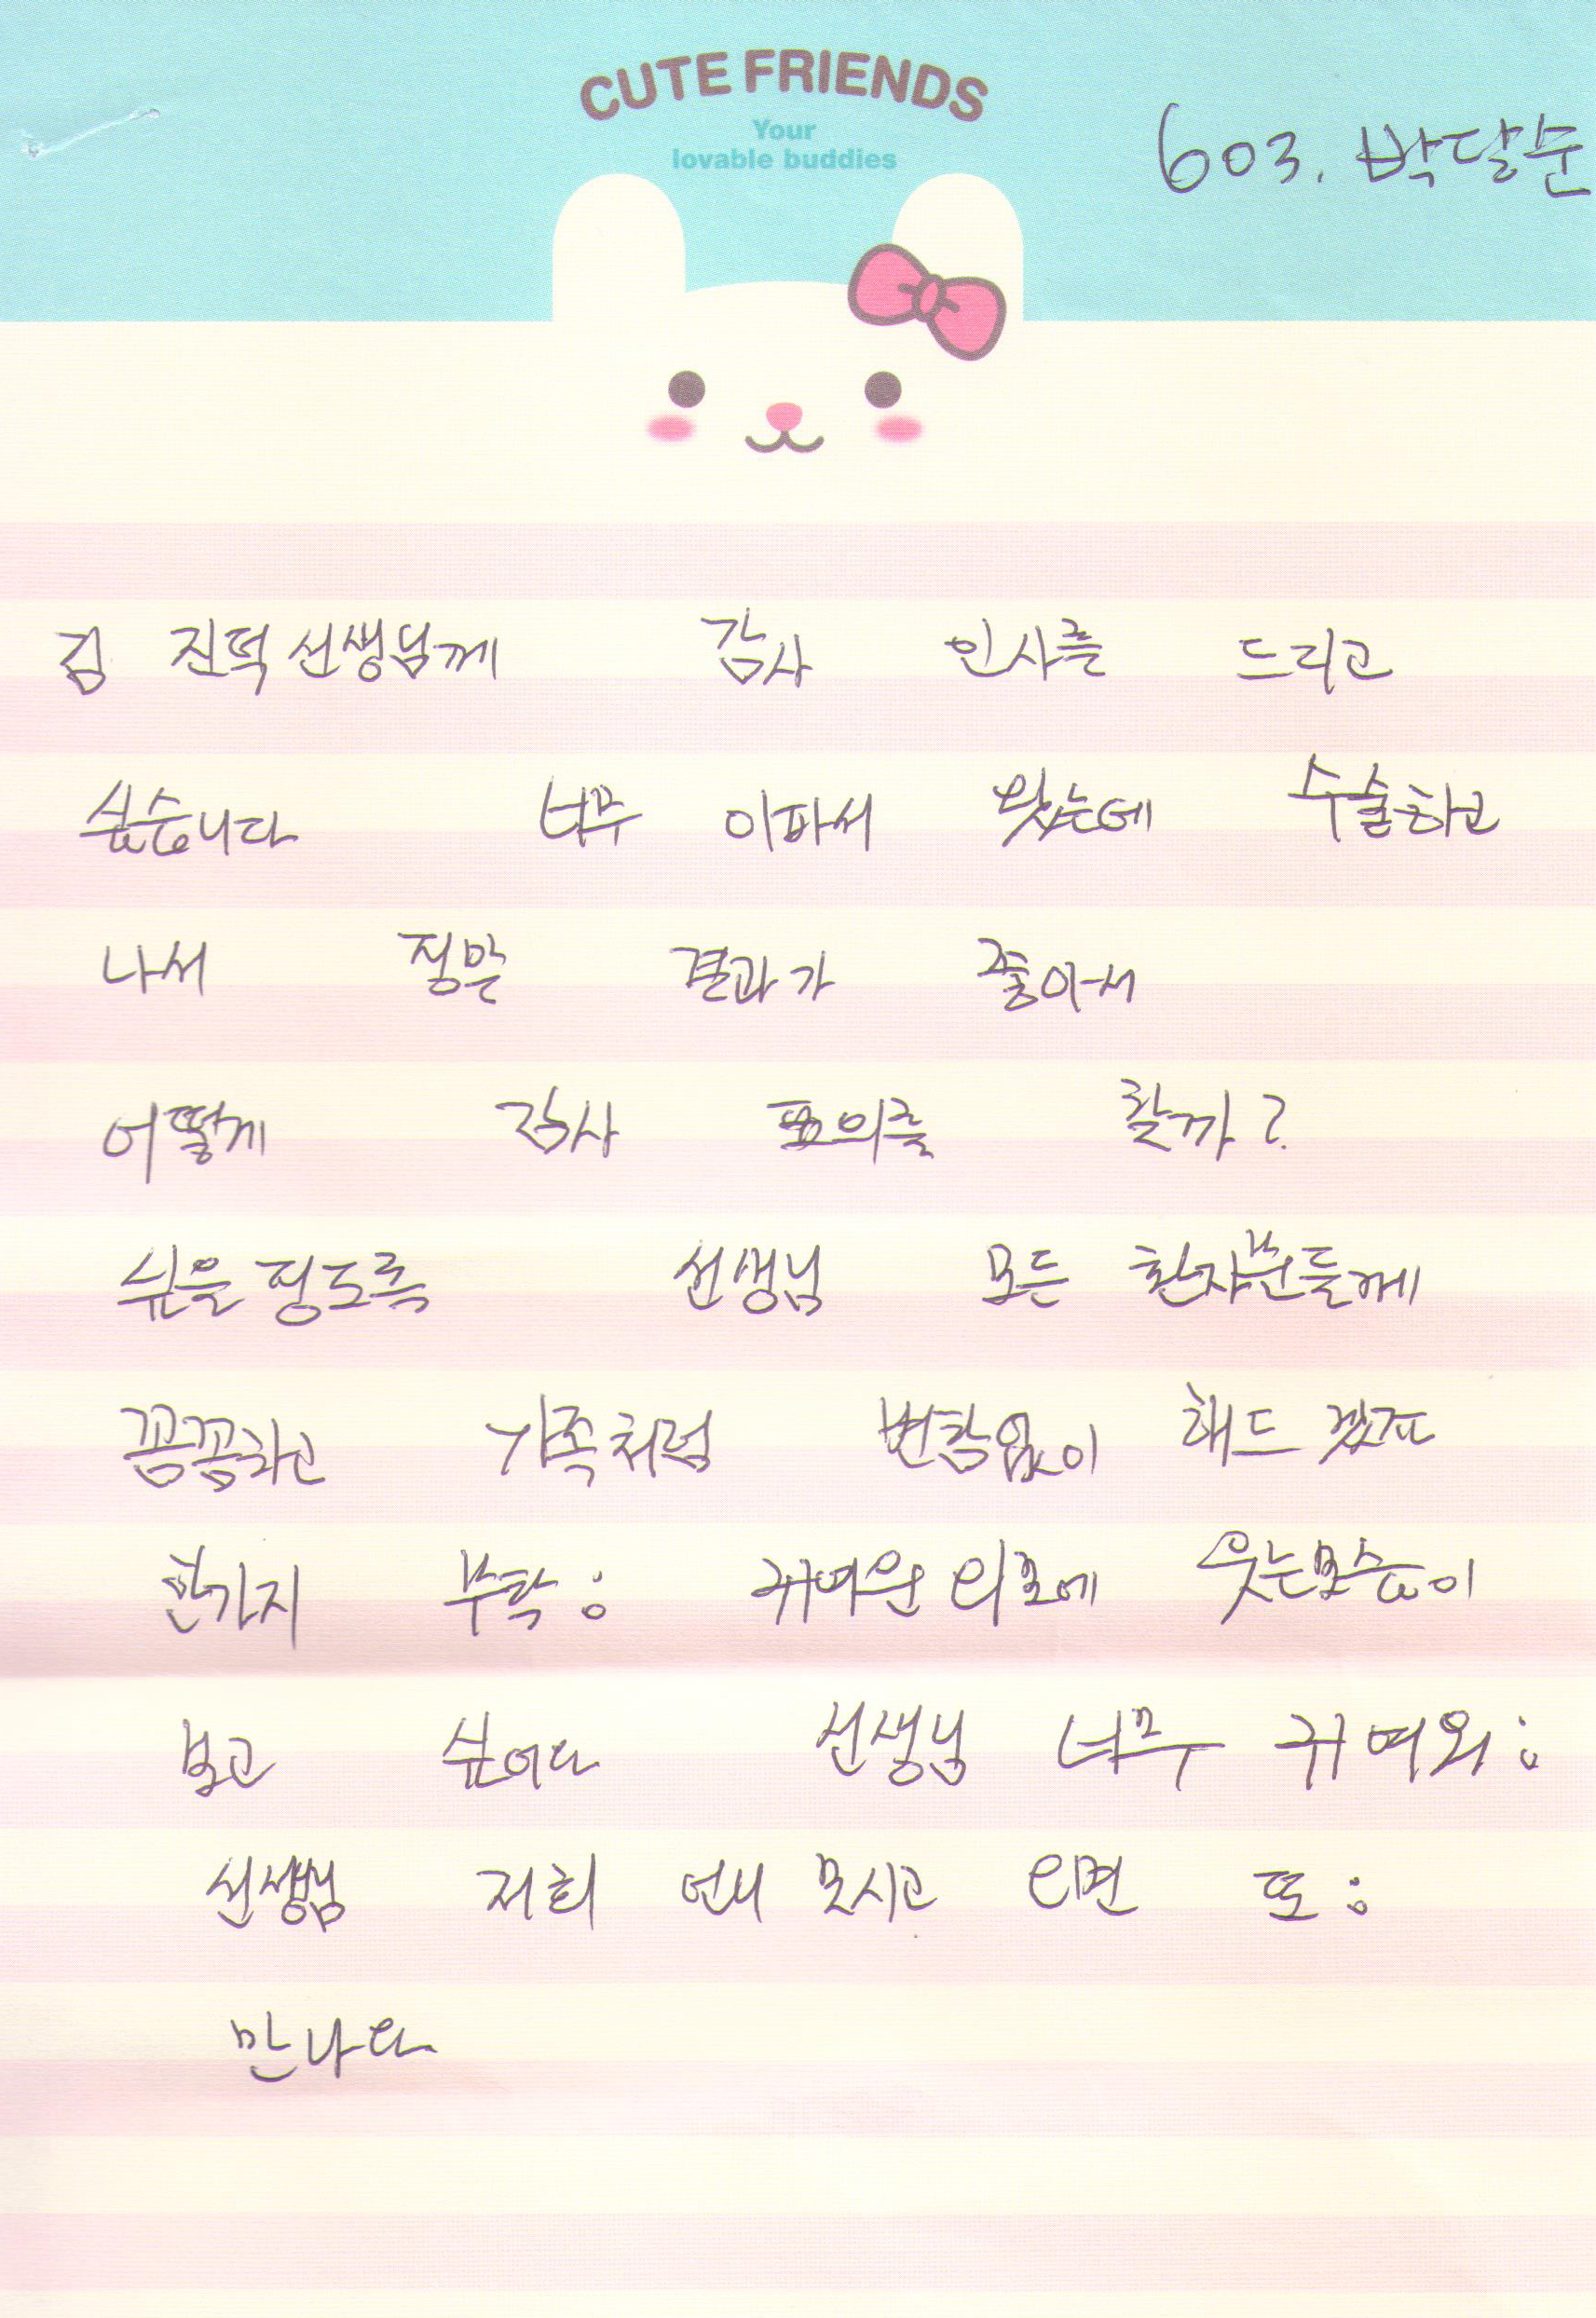 CUTE FRIENDS
Your
lovable buddies
603. 박달순
김 진덕 선생님께 감사 인사를 드리고
싶습니다 너무 아파서 왔는데 수술하고
나서 정말 결과가 좋아서
어떻게 감사 표의를 할까?
쉬을 정도록 선생님 모든 환자분들께
꼼꼼하고 가족처럼 변함없이 해드 겠죠
한가지 부탁: 귀여운 외모에 웃는모습이
보고 싶어요 선생님 너무 귀여워:
선생님 저희 언니 모시고 오면 또:
만나요